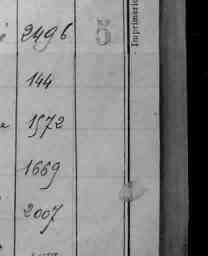 2496
5
Imprimerie
144
1572
1669
2007